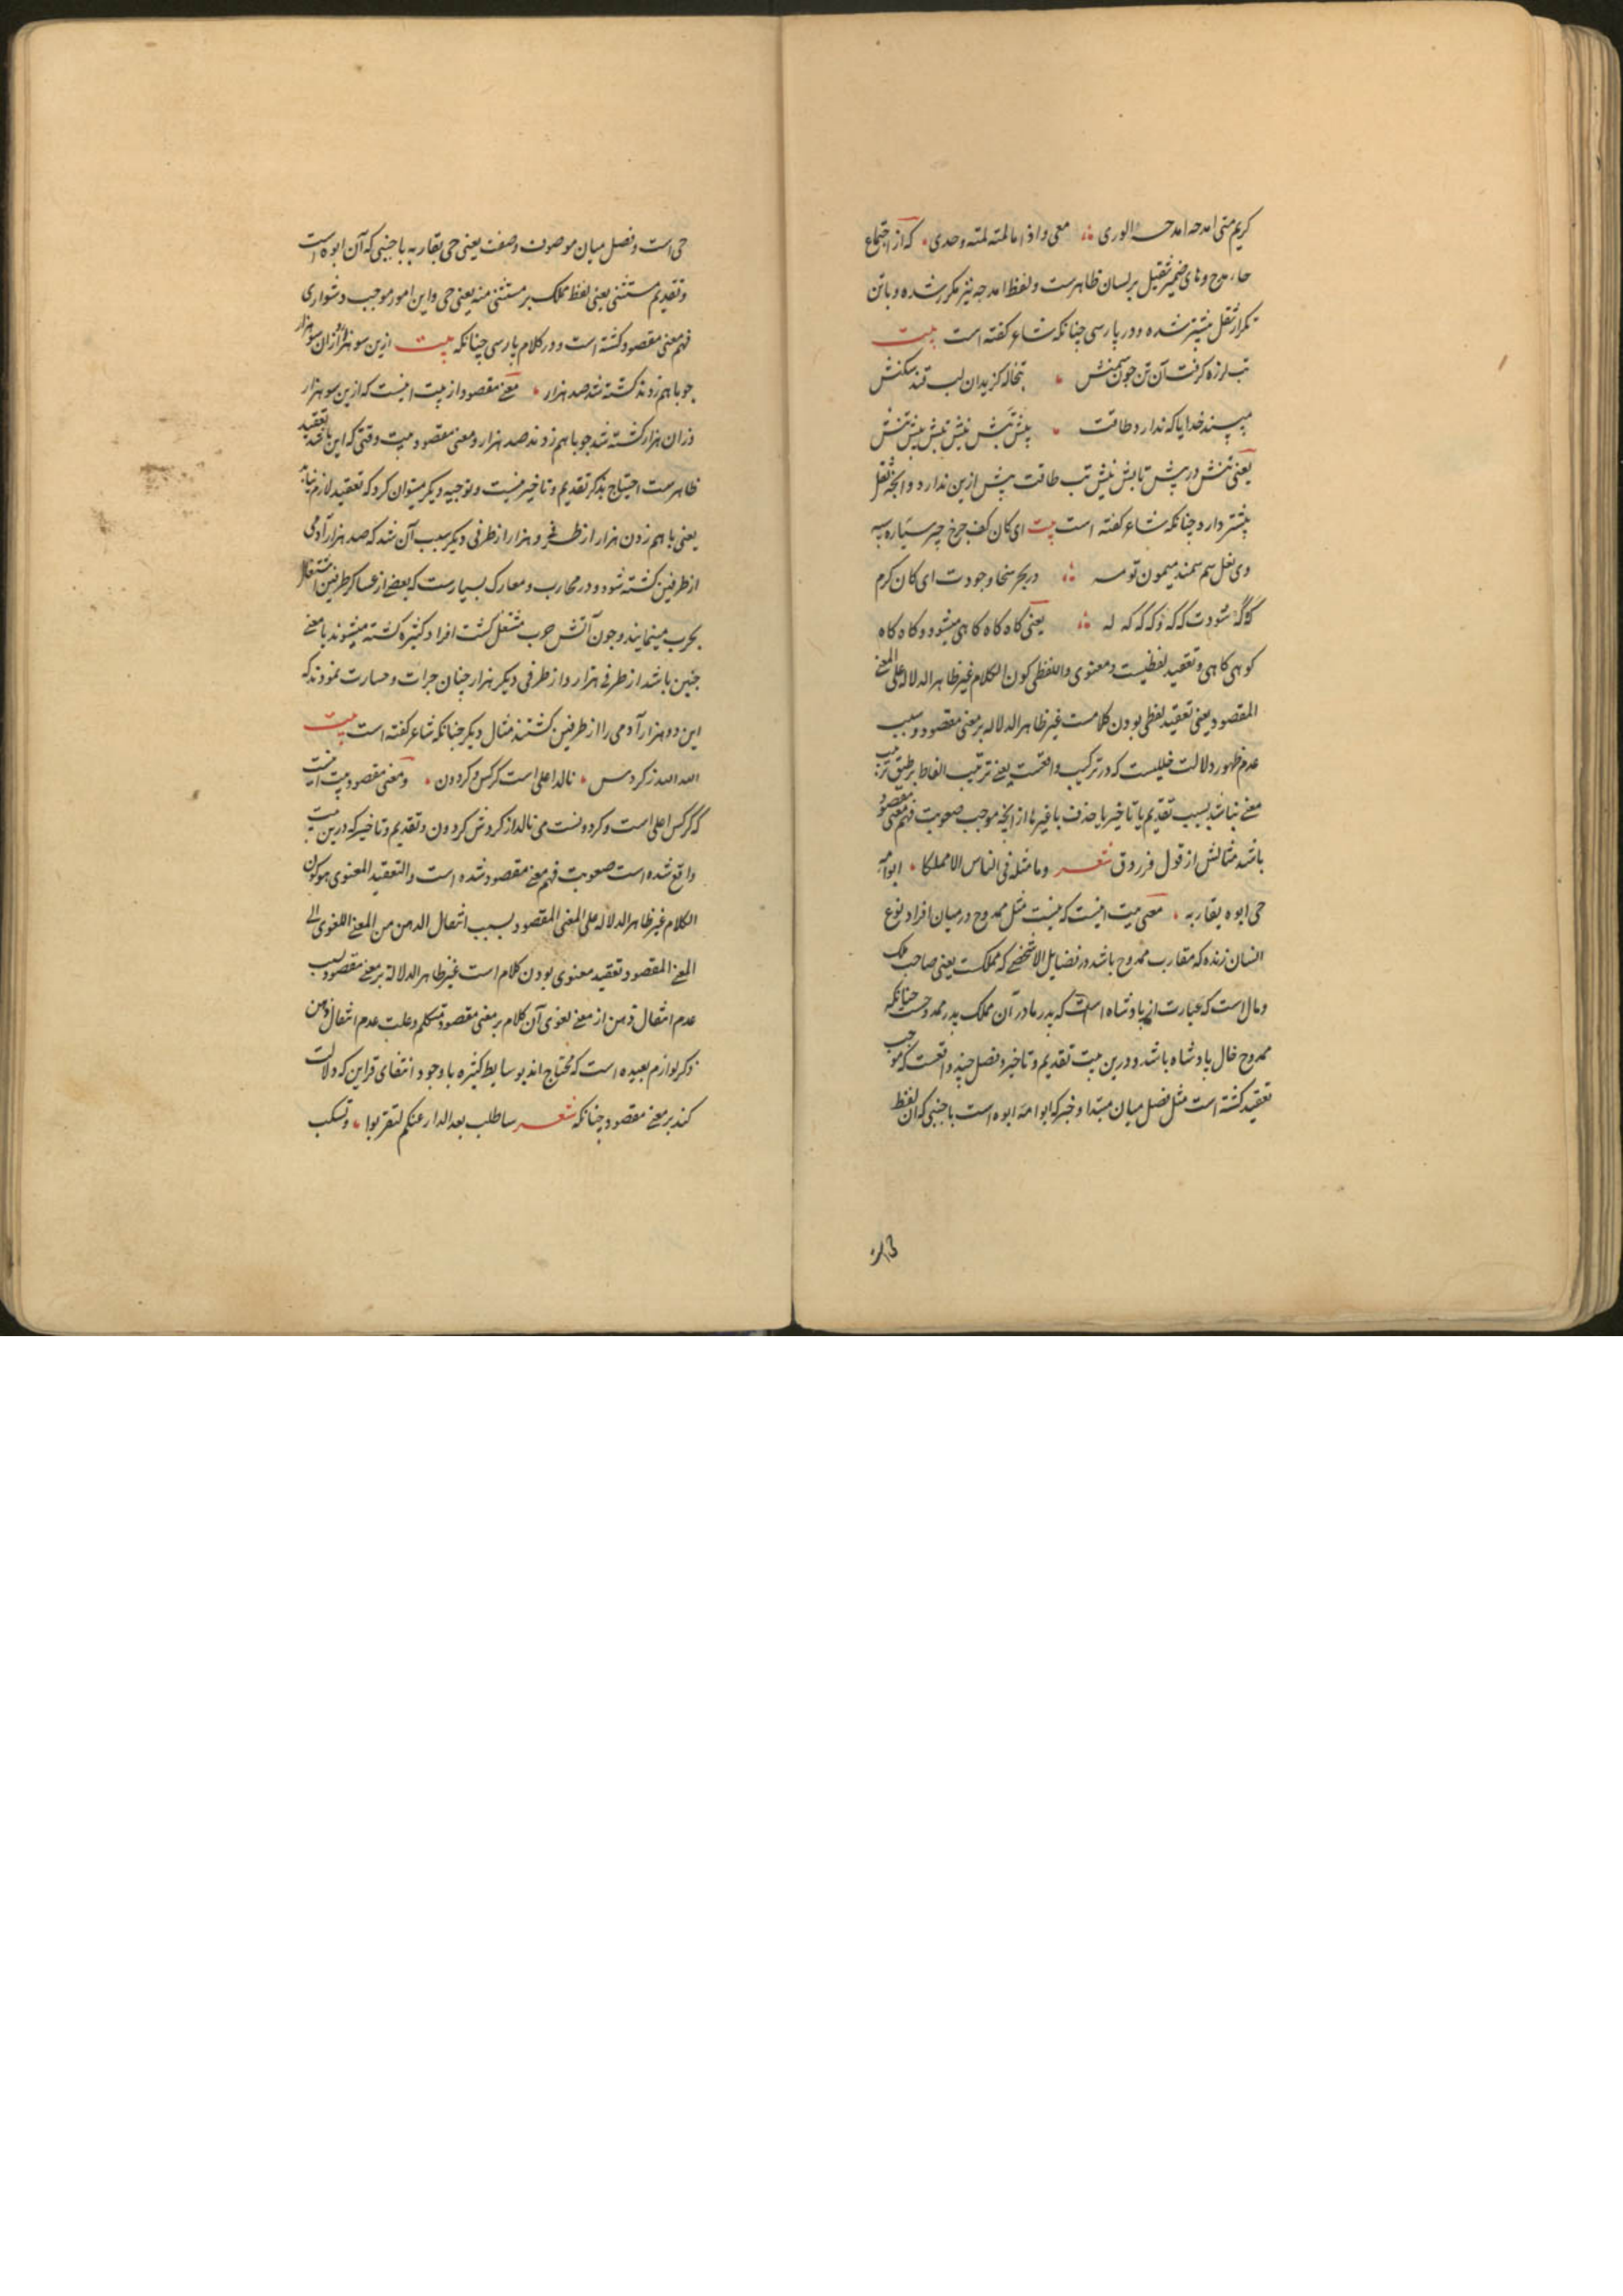 کریم متی امدحه امدحه الوری معی واذا ما لمته لمته وحدی که از اجتماع
حاء مدح و های ضمیر ثقیل بر لسان ظاهرست و لفظ امدحه نیز مکرر شده و باین
تکرار ثقل بیشتر شده و در پارسی چنانکه شاعر کفته است بیت
تب لرزه کرفت آن تن چون سمنش تبخاله کزید ان لب قند شکنش
مپسند خدایا که ندارد طاقت پیش تبش نیش تبش بیش تنش
یعنی تنش در پیش تابش نیش تب طاقت بیش ازین ندارد و انچه ثقل
بیشتر دارد چنانکه شاعر کفته است بیت ای کان کف چرخ چر سیاره سپه
وی نعل سم سمند میمون تو مه در بحر سخا وجودت ای کان کرم
که که شودت که که و که که که له یعنی کاه کاه کاهی میشود و کاه کاه
کوهی کاهی و تعقید لفظیست و معنوی واللفظی کون الکلام غیر ظاهر الدلاله علی المعنی
المقصود یعنی تعقید لفظی بودن کلامست غیر ظاهر الدلاله بر معنی مقصود و سبب
عدم ظهور دلالت خللیست که در ترکیب واقعست یعنی ترتیب الفاظ بر طبق ترتیب
معنی نباشد بسبب تقدیم یا تاخیر یا حذف یا غیرها از انچه موجب صعوبت فهم معنی مقصود
باشد مثالش از قول فرزدق شعر وما مثله فی الناس الا مملکا ابو امه
حی ابوه یقاربه معنی بیت اینست که نیست مثل ممدوح در میان افراد نوع
انسان زنده که مقارب ممدوح باشد در فضایل الا شخصی که مملکست یعنی صاحب ملک
و مال است که عبارت از پادشاه است که پدر مادر آن مملک پدر ممدوحست چنانکه
ممدوح خال پادشاه باشد و درین بیت تقدیم و تاخیر و فصل چند واقعست که موجب
تعقید کشته است مثل فصل میان مبتدا و خبر که ابو امه ابوه است باجنبی که ان لفظ
حی است و فصل میان موصوف و صفت یعنی حی یقاربه باجنبی که آن ابوه است
و تقدیم مستثنی یعنی لفظ مملک بر مستثنی منه یعنی حی و این امور موجب دشواری
فهم معنی مقصود کشته است و در کلام پارسی چنانکه بیت ازین سو هزار و ازان سو هزار
چو باهم زدند کشته شد صد هزار معنی مقصود از بیت اینست که ازین سو هزار
وزان هزار کشته شد چو باهم زدند صد هزار و معنی مقصود بیت وقتی که این باشد تعقید
ظاهرست احتیاج بذکر تقدیم و تاخیر نیست و توجیه دیکر میتوان کرد که تعقید لازم نیاید
یعنی باهم زدن هزار از طرفی و هزار از طرفی دیکر سبب آن شد که صد هزار آدمی
از طرفین کشته شود و در محارب و معارک بسیارست که بعضی از عساکر طرفین اشتغال
بحرب مینمایند و چون آتش حرب مشتعل کشت افراد کثیره کشته میشوند یا معنی
چنین باشد از طرفی هزار و از طرفی دیکر هزار چنان جرات و جسارت نمودند که
این دو هزار آدمی را از طرفین کشتند مثال دیکر چنانکه شاعر کفته است بیت
الله الله ز کردس نالد اعلی است کرکس و کردون و معنی مقصود بیت اینست
که کرکس اعلی است و کردونست می نالد از کردش کردون و تقدیم و تاخیر که درین بیت
واقع شده است صعوبت فهم معنی مقصود شده است والتعقید المعنوی هو کون
الکلام غیر ظاهر الدلاله علی المعنی المقصود بسبب انتقال الذهن من المعنی اللغوی الی
المعنی المقصود تعقید معنوی بودن کلام است غیر ظاهر الدلالة بر معنی مقصود بسبب
عدم انتقال ذهن از معنی لغوی آن کلام بر معنی مقصود متکلم و علت عدم انتقال ذهن
ذکر لوازم بعیده است که محتاج اند بوسایط کثیره با وجود انتفای قراین که دلالت
کند بر معنی مقصود چنانکه شعر ساطلب بعد الدار عنکم لتقربوا وتسکب